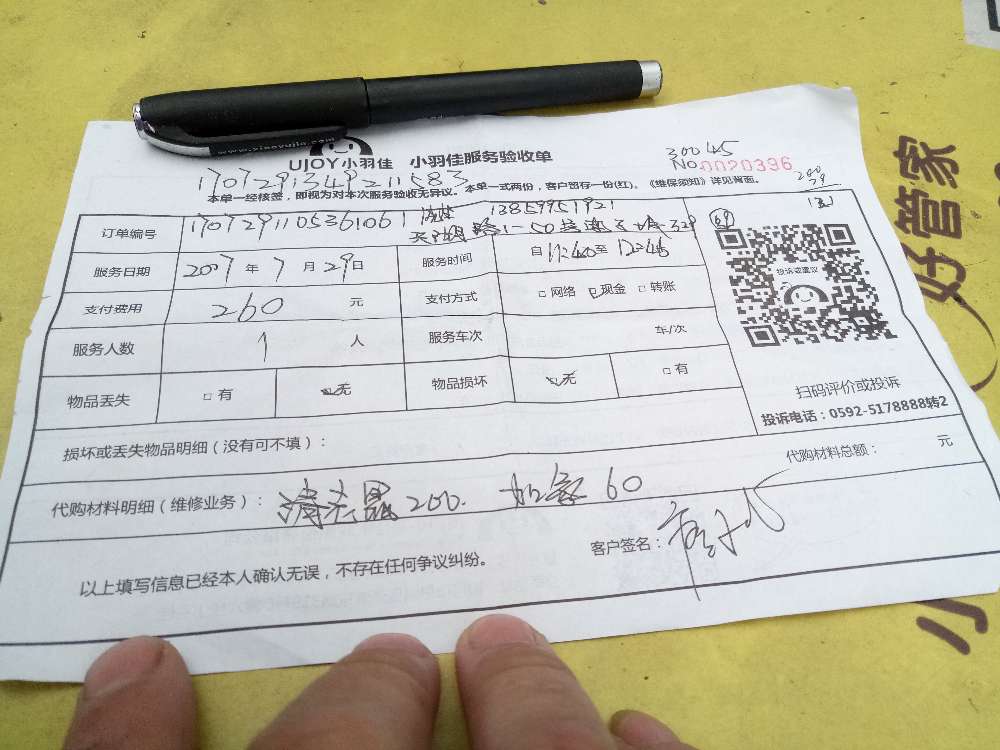 www.xiaoyujia.com
UJOY小羽佳 小羽佳服务验收单
30045
No.0020336
1707291349211583
本单一经核签，即视为对本次服务验收无异议。本单一式两份，客户留存一份(红)。《维保须知》详见背面。
200
订单编号 170729110536106 13859951921
服务日期 2017年7月29日 服务时间 自11:40至12:45
支付费用 260元 支付方式 网络 现金 转账
服务人数 1人 服务车次 车/次
物品丢失 有 无 物品损坏 无 有
投诉或建议
扫码评价或投诉
投诉电话：0592-5178888转2
损坏或丢失物品明细（没有可不填）：
代购材料总额： 元
代购材料明细（维修业务）： 200. 加氟60
以上填写信息已经本人确认无误，不存在任何争议纠纷。
客户签名：
好管家
小